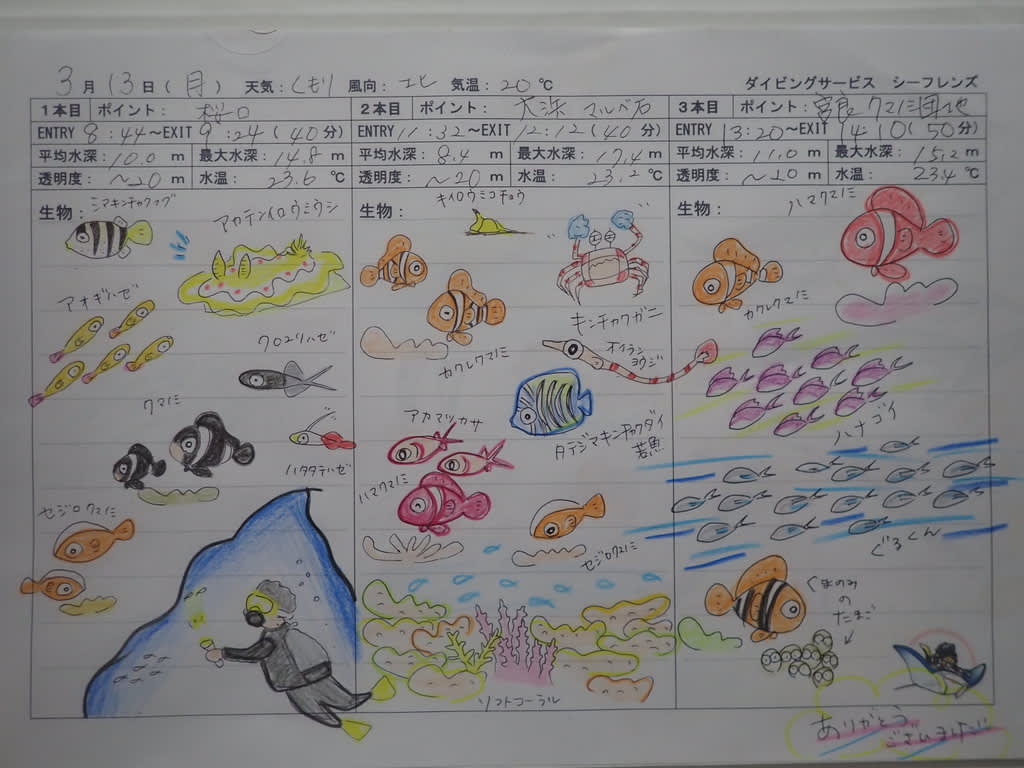 3月13日(月) 天気:くもり 風向:北 気温:20℃ ダイビングサービス シーフレンズ
1本目 ポイント: 桜口
ENTRY 8:44～EXIT 9:24(40分)
平均水深:10.0 m 最大水深:14.8 m
透明度:～20 m 水温: 23.6 ℃
生物:
シマキンチャクフグ
アカテンイロウミウシ
アオギハゼ
クロユリハゼ
クマノミ
ハタタテハゼ
セジロクマノミ
2本目 ポイント: 大浜 マルベ石
ENTRY 11:32～EXIT 12:12(40分)
平均水深:8.4 m 最大水深:17.4 m
透明度:～20 m 水温: 23.2 ℃
生物:
キイロウミコチョウ
キンチャクガニ
カクレクマノミ
オイランヨウジ
アカマツカサ
タテジマキンチャクダイ
若魚
ハマクマノミ
セジロクマノミ
ソフトコーラル
3本目 ポイント: 宮良 クマノミ団地
ENTRY 13:20～EXIT 14:10(50分)
平均水深:11.0 m 最大水深:15.2 m
透明度:～20 m 水温: 23.4 ℃
生物:
ハマクマノミ
カクレクマノミ
ハナゴイ
ぐるくん
くまのみ
の
たまご
ありがとう
ございます!!